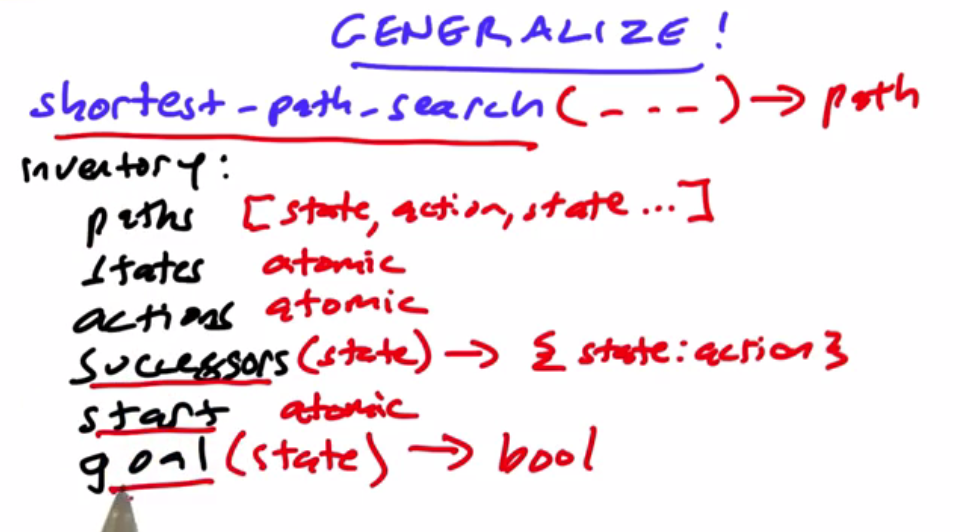 GENERALIZE!
shortest-path-search(---) → path
inventory:
paths [state, action, state ...]
states atomic
actions atomic
successors (state) → {state:action}
start atomic
goal (state) → bool